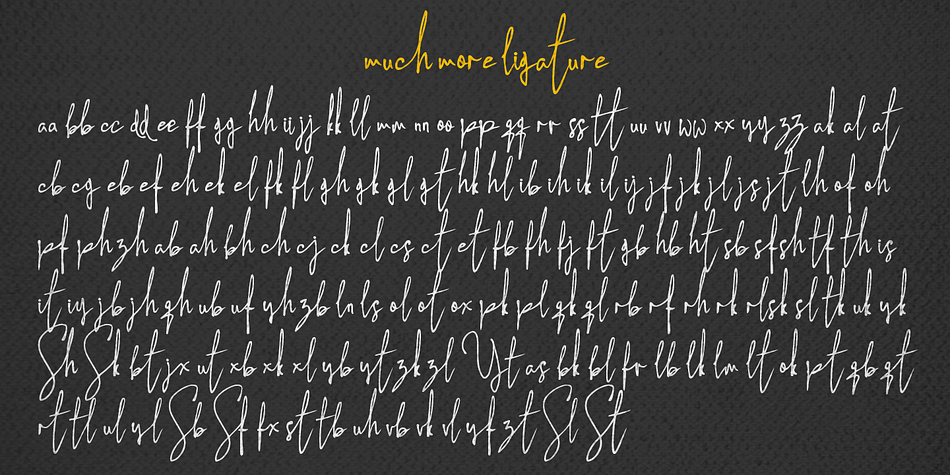 much more ligature
aa bb cc dd ee ff gg hh ii jj kk ll mm nn oo pp qq rr ss tt uu vv ww xx yy zz ak al at
cb cg eb ef eh ek el fk fl gh gk gl gt hk hl ib ih ik il ij jf jk jl js jt lh of oh
pf ph zh ab ah bh ch cj ck cl cs ct et fb fh fj ft gb hb ht sb sf sh tf th is
it iy jb jh qh ub uf yh zb ln ls ol ot ox pk pl qk ql rb rf rh rk rl sk sl tk uk yk
Sh Sk bt jx ut xb xk xl yb yt zk zl Yt as bk bl fr lb lk lm lt ok pt qb qt
rt tl ul yl Sb Sf fx st tb uh vb vk vl yf zt Sl St